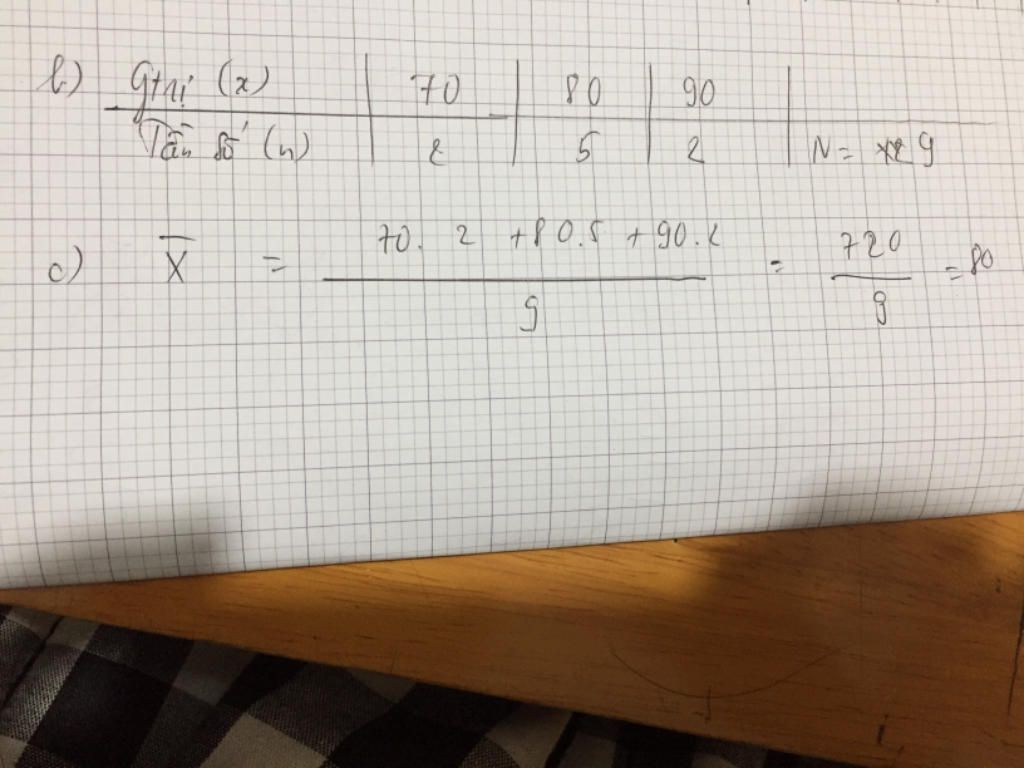 b) Gtrị (x) 70 80 90
Tần số (n) 2 5 2 N = 9
c) X̅ = 70. 2 + 80.5 + 90.2 / 9 = 720 / 9 = 80